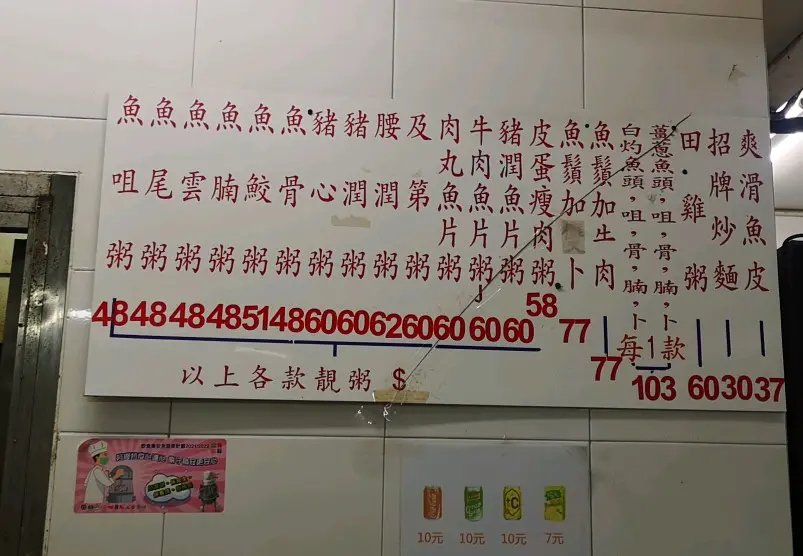 魚咀粥
魚尾粥
魚雲粥
魚腩粥
魚鮫粥
魚骨粥
豬心粥
豬潤粥
腰潤粥
及第粥
肉丸魚片粥
牛肉魚片粥
豬潤魚片粥
皮蛋瘦肉粥
魚鬚加卜
魚鬚加生肉
白灼魚頭，咀，骨，腩，卜
薑蔥魚頭，咀，骨，腩，卜
每1款
田雞粥
招牌炒麵
爽滑魚皮
48 48 48 48 51 48 60 60 62 60 60 60 60 58 77 77 103 60 30 37
以上各款靚粥 $
10元 10元 10元 7元